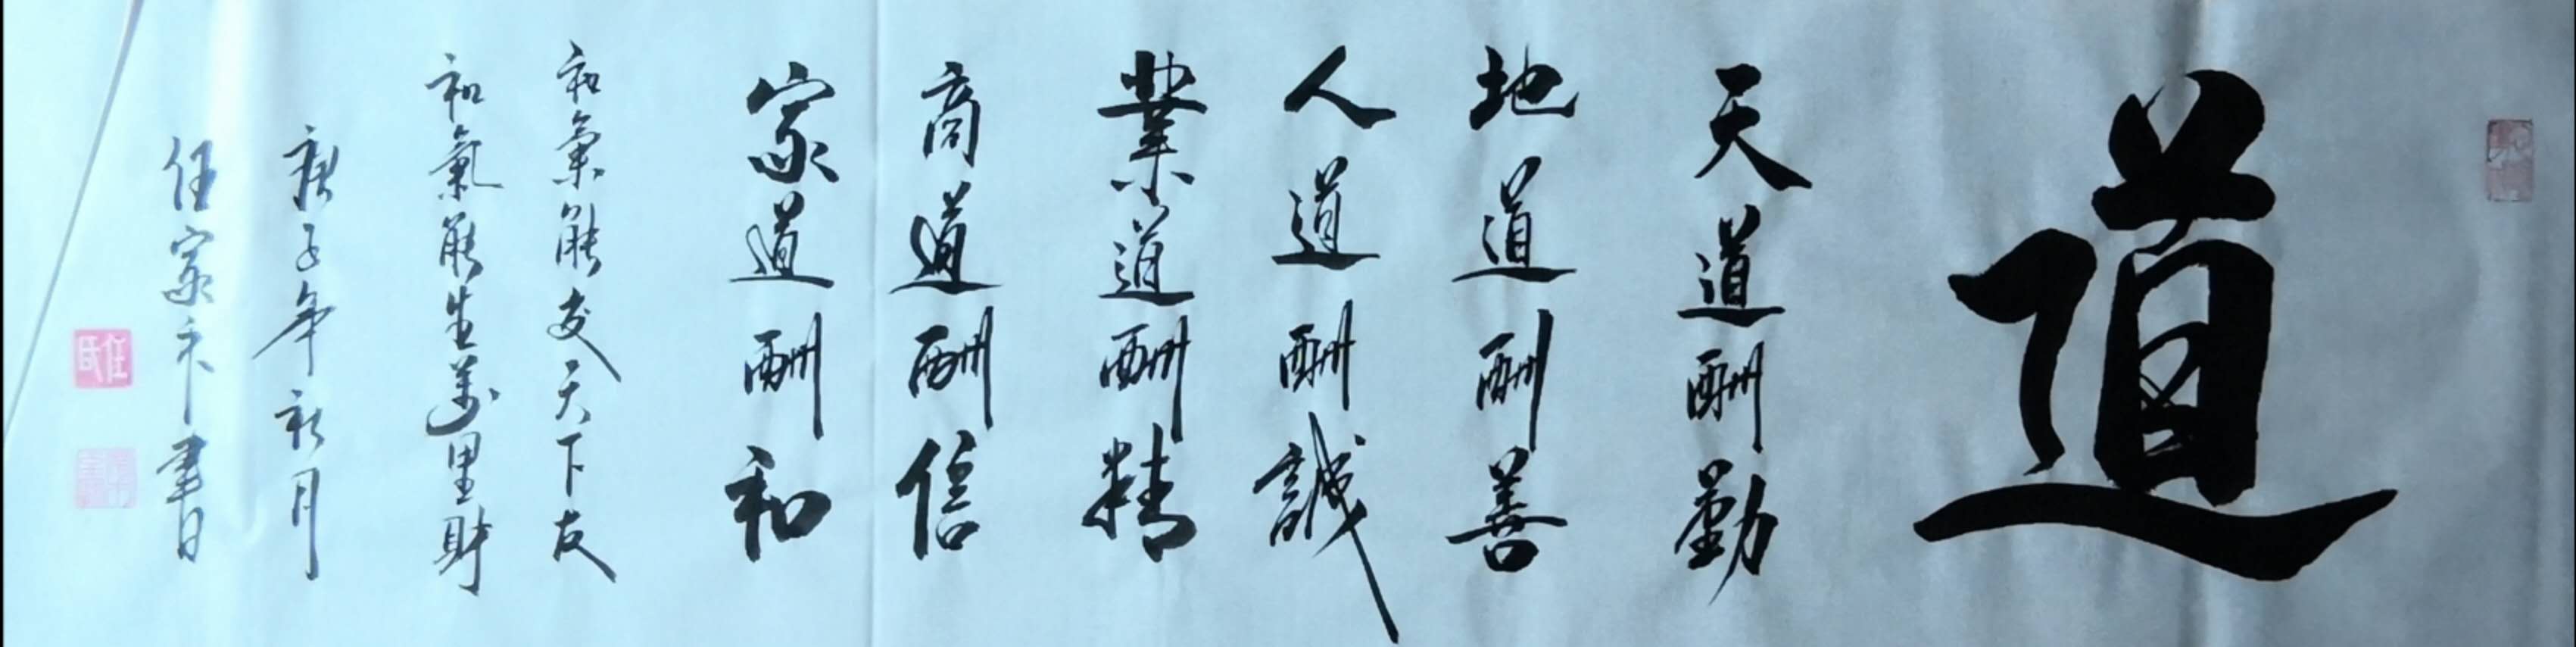 道
天道酬勤
地道酬善
人道酬誠
業道酬精
商道酬信
家道酬和
和氣能交天下友
和氣能生萬里財
庚子年秋月
任家禾書
任氏